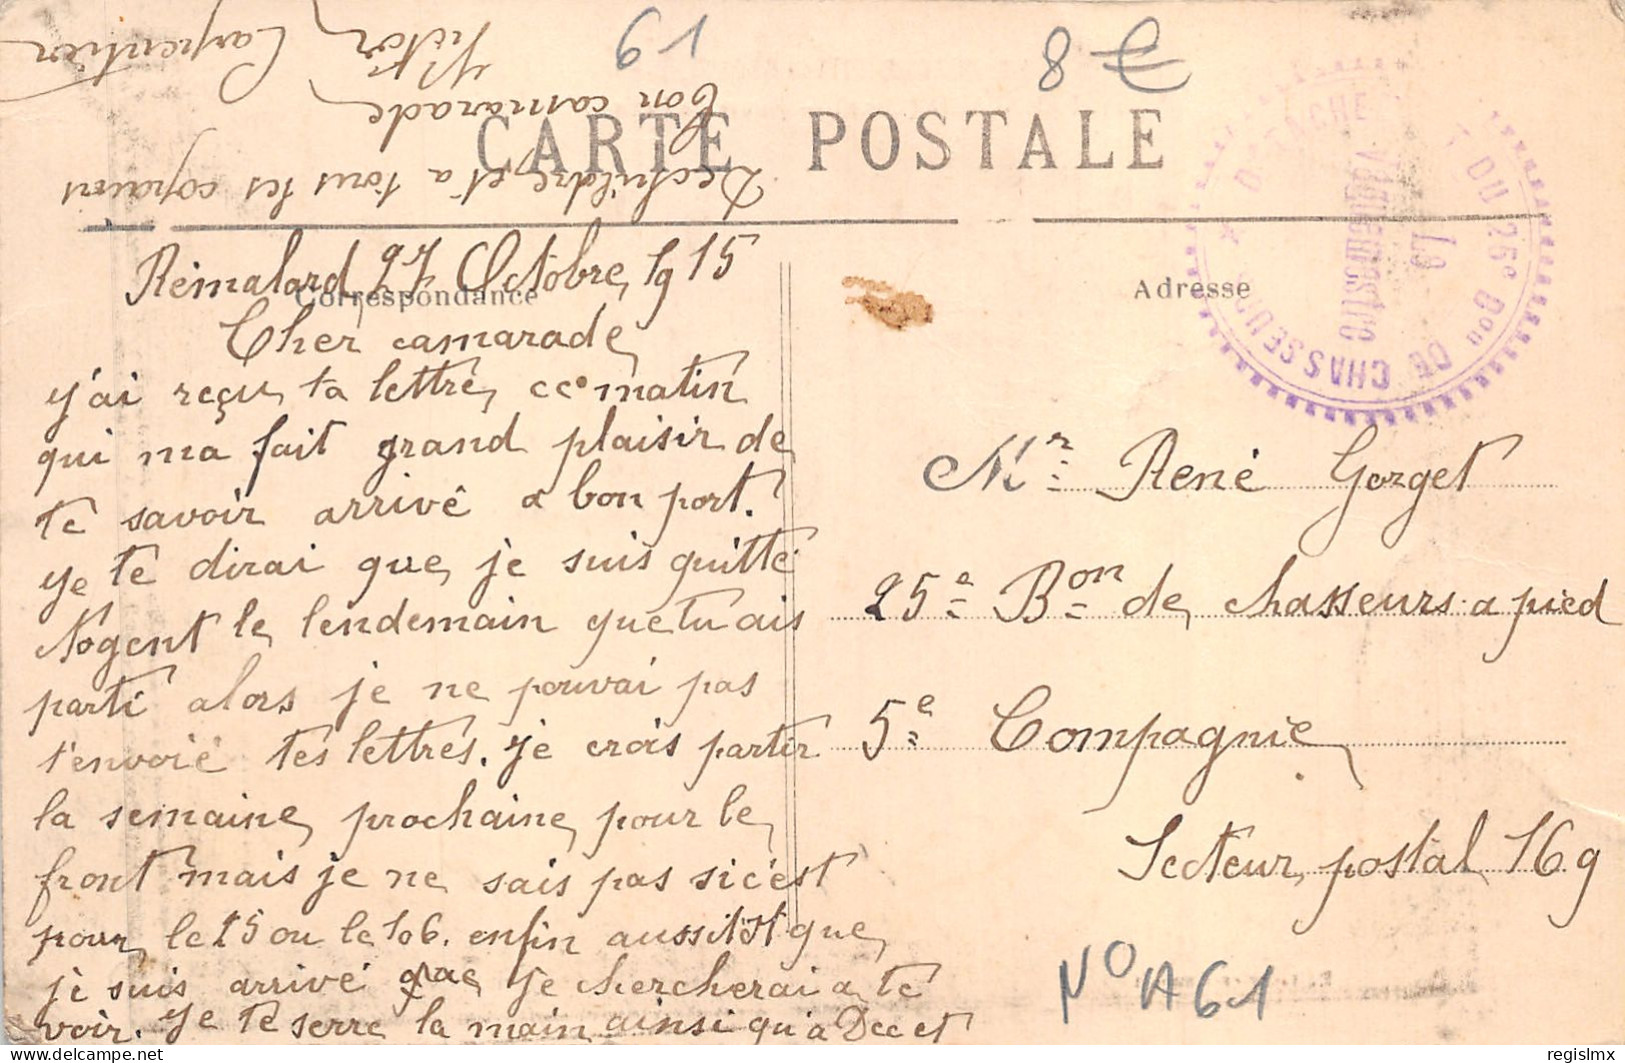 CARTE POSTALE
Correspondance
Remalard 27 Octobre 1915
Cher camarade
j'ai reçu ta lettre ce matin
qui ma fait grand plaisir de
te savoir arrivé a bon port.
je te dirai que je suis quitté
Nogent le lendemain que tu ais
parti alors je ne pouvai pas
t'envoié tes lettres. je crois partir
la semaine prochaine pour le
front mais je ne sais pas si c'est
pour le 25 ou le 106. enfin aussitôt que
je suis arrivé que je chercherai a te
voir. Je te serre la main ainsi qu'a Dec et
Dechildre et a tous les copains
Ton camarade
Victor Carpentier
19
8 €
Adresse
Le
Vaguemestre
DU 25e Bon DE CHASSEURS
Mr René Gorget
25e Bon de chasseurs a pied
5e Compagnie
Secteur postal 169
N° A61
regislmx